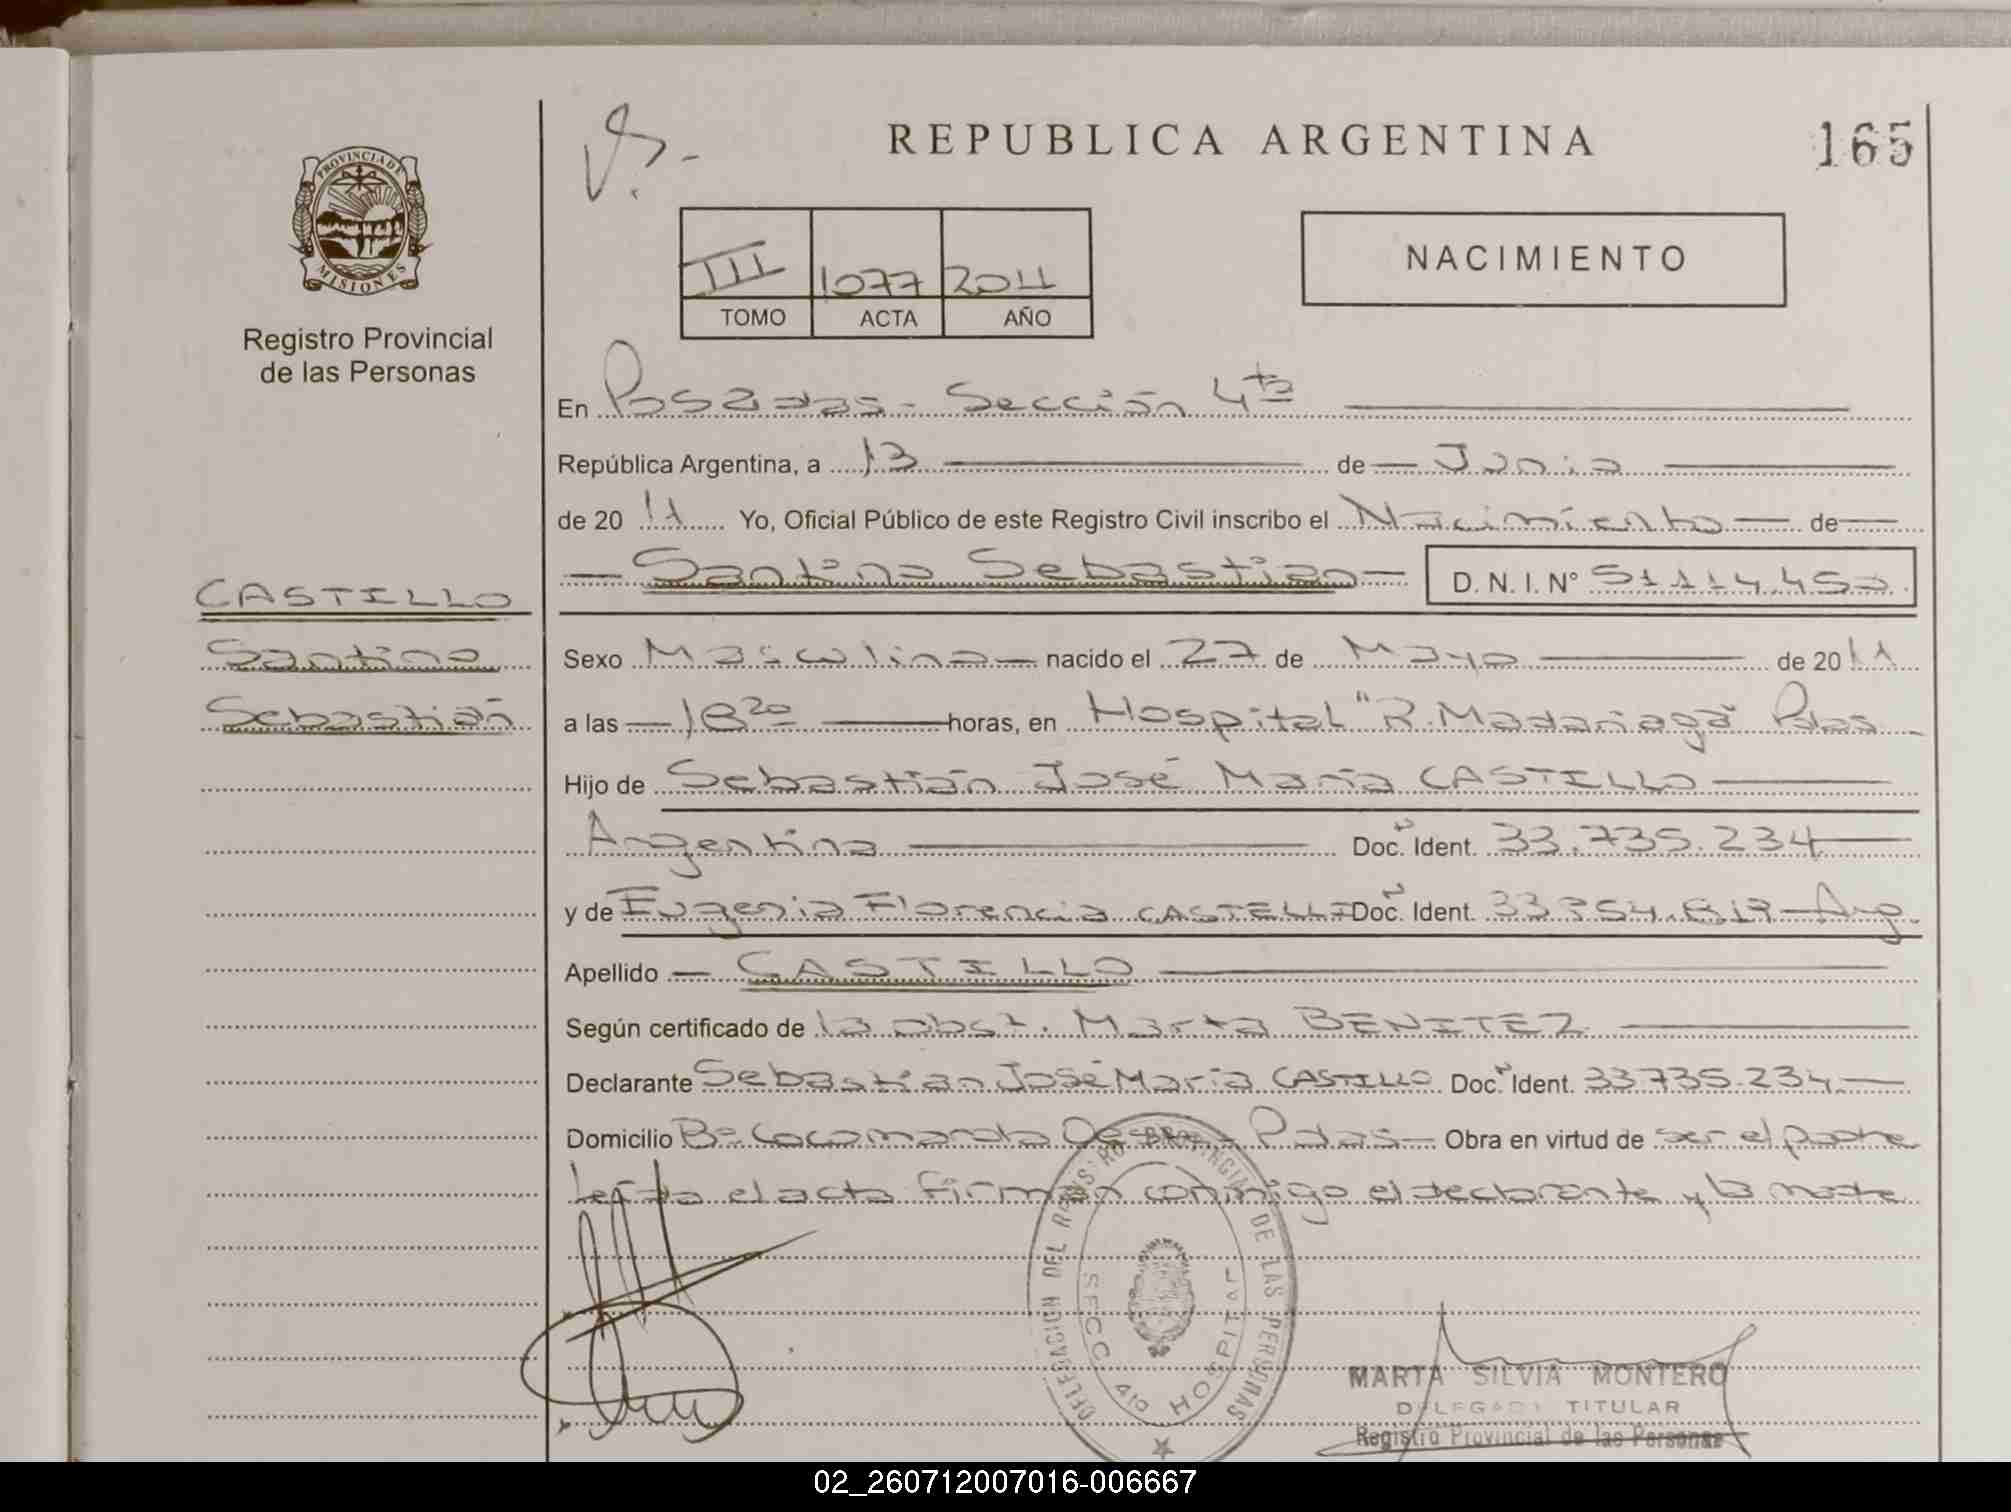 REPUBLICA ARGENTINA
165
PROVINCIA DE
MISIONES
Registro Provincial
de las Personas
III 1077 2011
TOMO ACTA AÑO
NACIMIENTO
En Posadas - Sección 4ta
República Argentina, a 13 de Junio
de 2011 Yo, Oficial Público de este Registro Civil inscribo el Nacimiento de
Santino Sebastian D. N. I. N°
CASTILLO
Santino
Sebastián
Sexo Masculino nacido el 27 de Mayo de 2011
a las 18 20 horas, en Hospital "R. Madariaga" Pdas
Hijo de Sebastián José María CASTILLO
Argentina Doc. Ident. 33.735.234
y de Eugenia Florencia Doc. Ident. Arg.
Apellido CASTILLO
Según certificado de la obst. Marta BENITEZ
Declarante Sebastián José María CASTILLO Doc. Ident. 33735.234
Domicilio Bº Cocomarola Pdas Obra en virtud de ser el padre
leída el acta firman conmigo el declarante y la madre
DELEGACION DEL REGISTRO PROVINCIAL DE LAS PERSONAS
SECC 4ta HOSPITAL
MARTA SILVIA MONTERO
DELEGADA TITULAR
Registro Provincial de las Personas
02_260712007016-006667